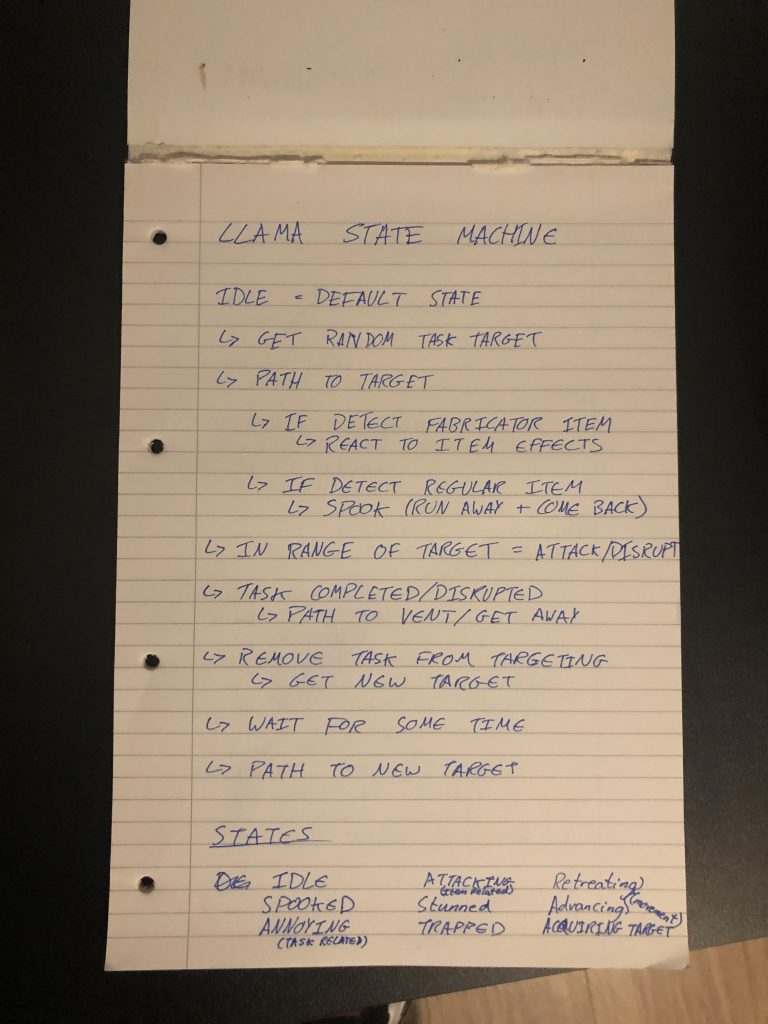 LLAMA STATE MACHINE
IDLE = DEFAULT STATE
↳ GET RANDOM TASK TARGET
↳ PATH TO TARGET
↳ IF DETECT FABRICATOR ITEM
↳ REACT TO ITEM EFFECTS
↳ IF DETECT REGULAR ITEM
↳ SPOOK (RUN AWAY + COME BACK)
↳ IN RANGE OF TARGET = ATTACK/DISRUPT
↳ TASK COMPLETED/DISRUPTED
↳ PATH TO VENT/GET AWAY
↳ REMOVE TASK FROM TARGETING
↳ GET NEW TARGET
↳ WAIT FOR SOME TIME
↳ PATH TO NEW TARGET
STATES
IDLE ATTACKING Retreating)
(item related)
SPOOKED Stunned Advancing)
ANNOYING TRAPPED ACQUIRING TARGET
(TASK RELATED)